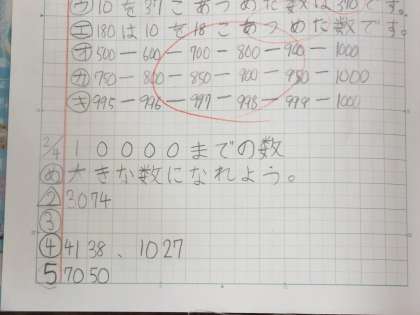 ㋒10を37こあつめた数は370です。
㋓180は10を18こあつめた数です。
㋔500-600-700-800-900-1000
㋕750-800-850-900-950-1000
㋖995-996-997-998-999-1000
2/4 10000までの数
め 大きな数になれよう。
2 3074
3
4 4138、1027
5 7050